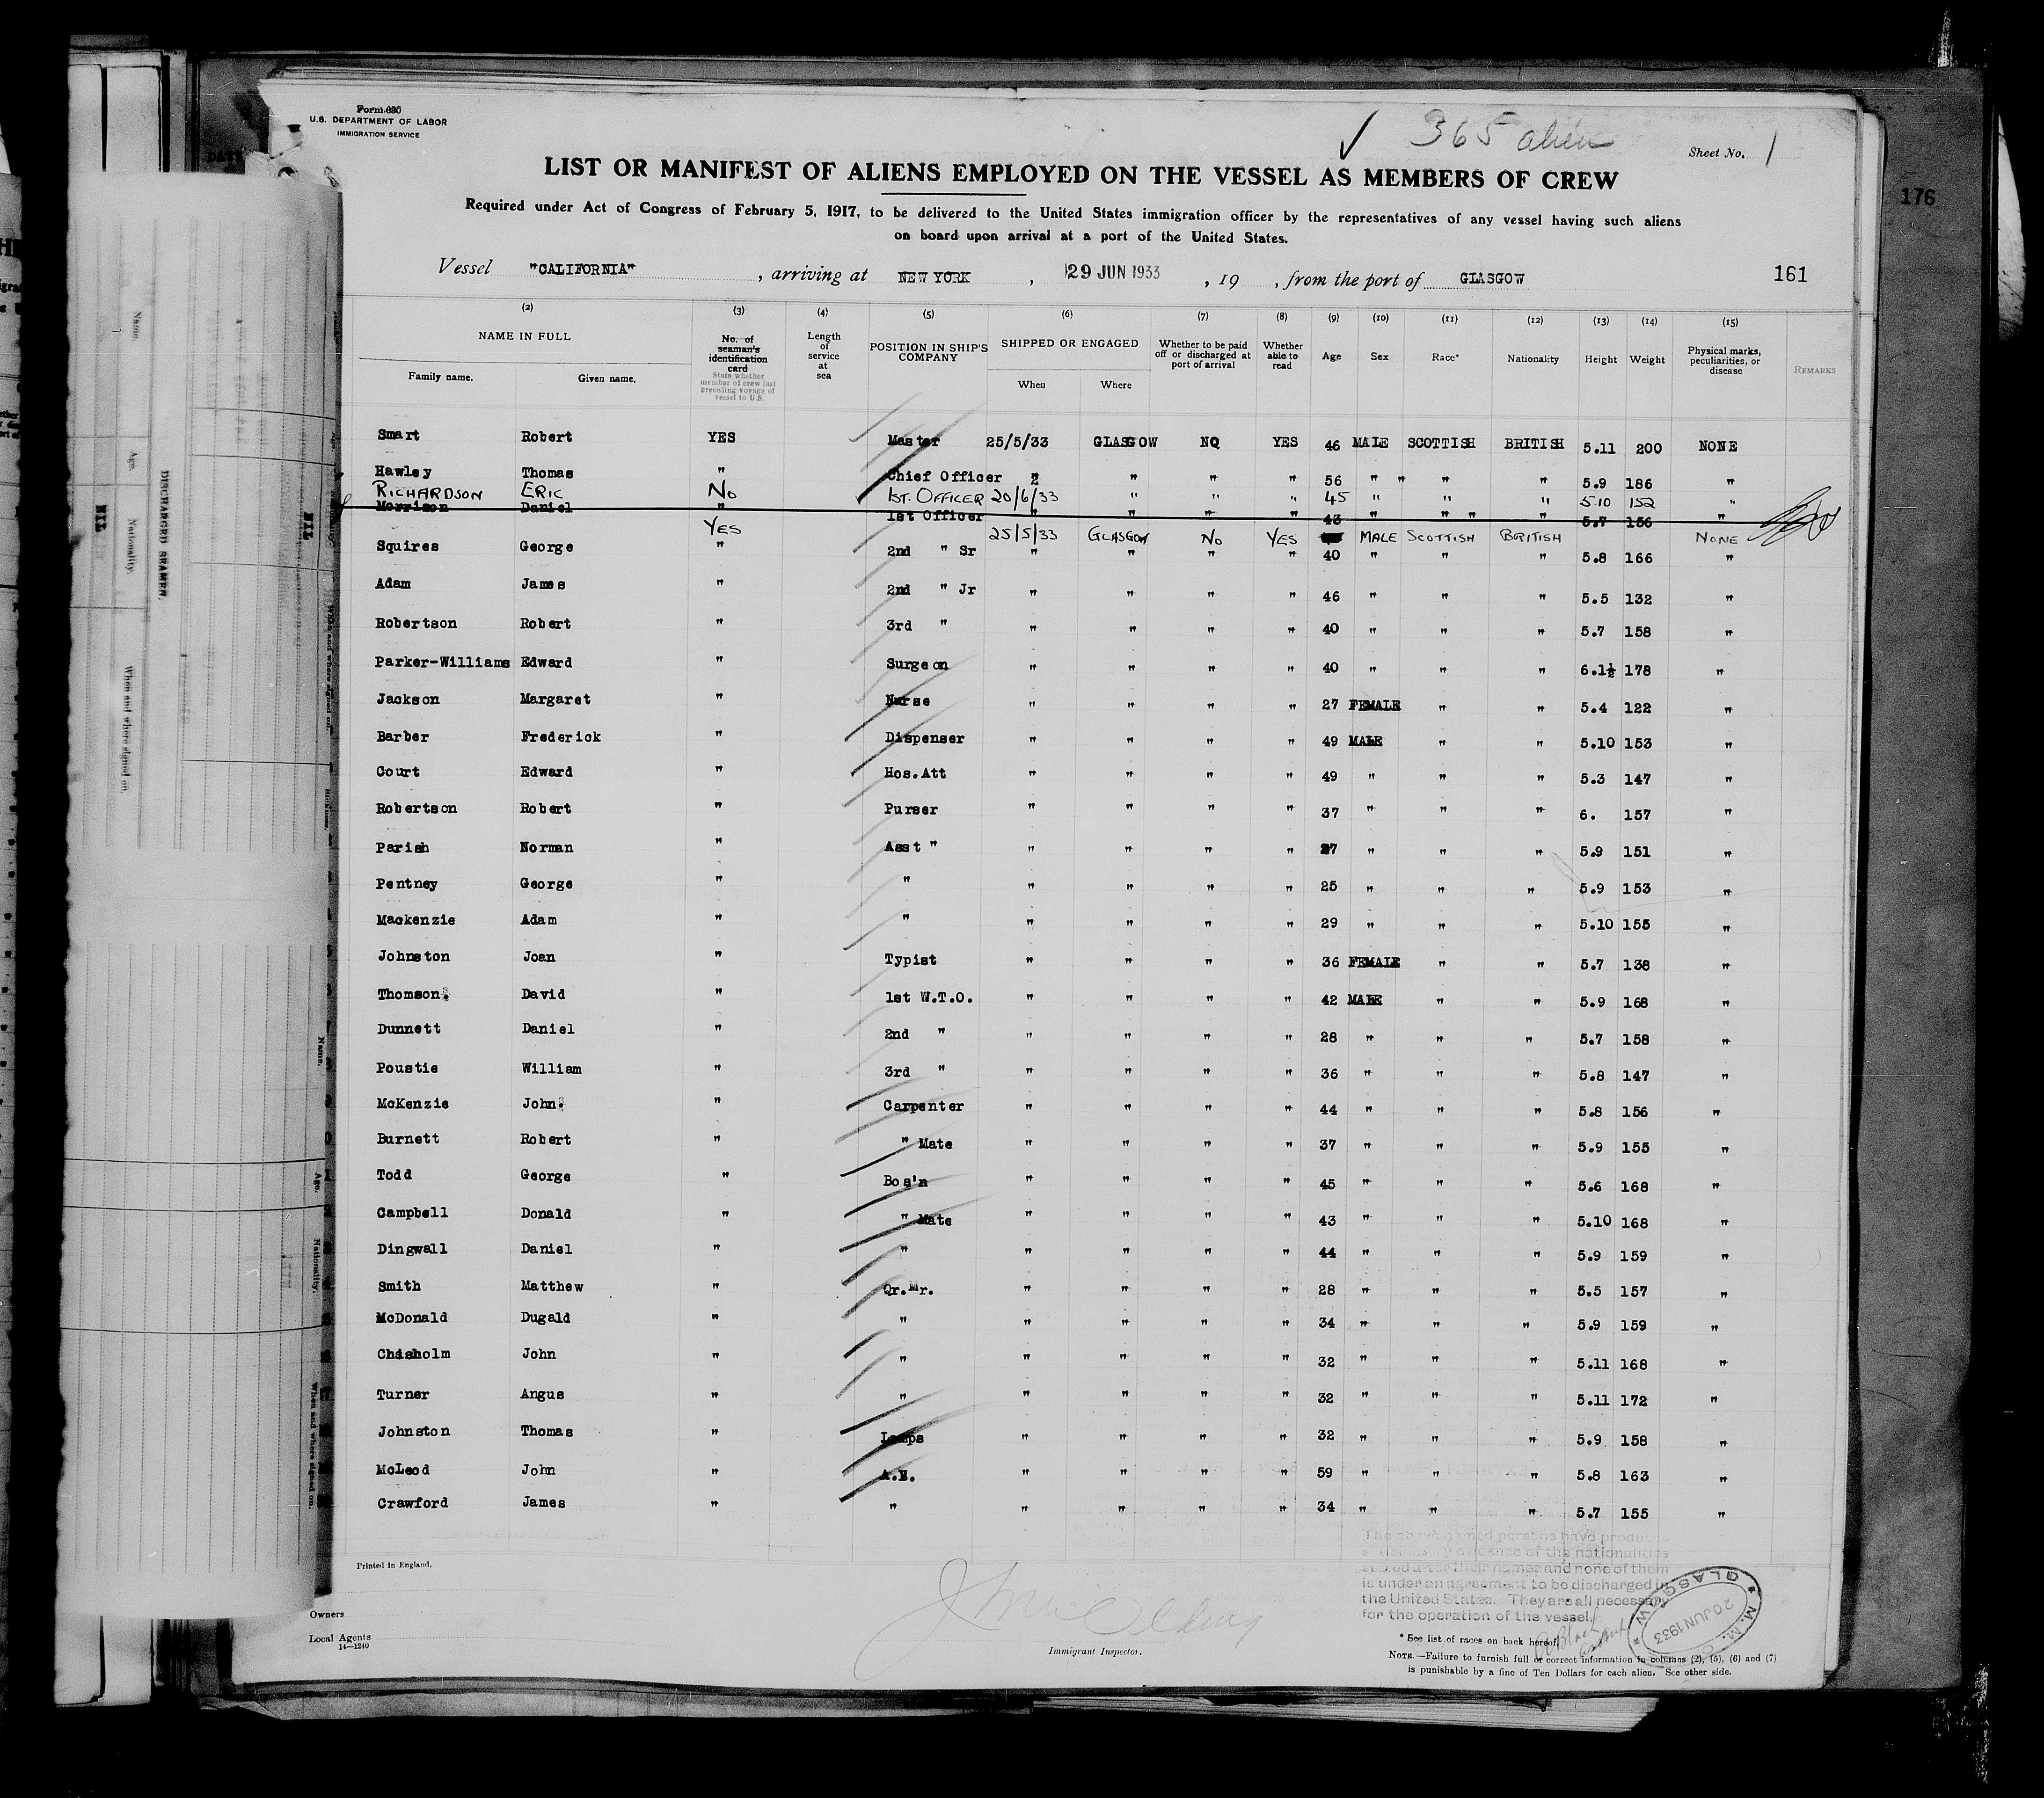 Form 680
U.S. DEPARTMENT OF LABOR
IMMIGRATION SERVICE
365 alien
Sheet No. 1
176
LIST OR MANIFEST OF ALIENS EMPLOYED ON THE VESSEL AS MEMBERS OF CREW
Required under Act of Congress of February 5, 1917, to be delivered to the United States immigration officer by the representatives of any vessel having such aliens
on board upon arrival at a port of the United States.
Vessel "CALIFORNIA", arriving at NEW YORK, 29 JUN 1933, 19 , from the port of GLASGOW 161
(2) (3) (4) (5) (6) (7) (8) (9) (10) (11) (12) (13) (14) (15)
NAME IN FULL No. of seaman's identification card State whether member of crew last preceding voyage of vessel to U.S. Length of service at sea POSITION IN SHIP'S COMPANY SHIPPED OR ENGAGED Whether to be paid off or discharged at port of arrival Whether able to read Age Sex Race* Nationality Height Weight Physical marks, peculiarities, or disease REMARKS
Family name. Given name. When Where
Smart Robert YES Master 25/5/33 GLASGOW NO YES 46 MALE SCOTTISH BRITISH 5.11 200 NONE
Hawley Thomas " Chief Officer " " " " 56 " " " 5.9 186 "
RICHARDSON ERIC No 1ST. OFFICER 20/6/33 " " " 45 " " " 5.10 152 "
Morrison Daniel " 1st Officer " " " " 43 " " " " 5.7 156 "
YES 25/5/33 GLASGOW No YES MALE SCOTTISH BRITISH NONE
Squires George " 2nd " Sr " " " " 40 " " " 5.8 166 "
Adam James " 2nd " Jr " " " " 46 " " " 5.5 132 "
Robertson Robert " 3rd " " " " " 40 " " " 5.7 158 "
Parker-Williams Edward " Surgeon " " " " 40 " " " 6.1½ 178 "
Jackson Margaret " Nurse " " " " 27 FEMALE " " 5.4 122 "
Barber Frederick " Dispenser " " " " 49 MALE " " 5.10 153 "
Court Edward " Hos.Att " " " " 49 " " " 5.3 147 "
Robertson Robert " Purser " " " " 37 " " " 6. 157 "
Parish Norman " Asst " " " " " 27 " " " 5.9 151 "
Pentney George " " " " " " 25 " " " 5.9 153 "
Mackenzie Adam " " " " " " 29 " " " 5.10 155 "
Johnston Joan " Typist " " " " 36 FEMALE " " 5.7 138 "
Thomson. David " 1st W.T.O. " " " " 42 MALE " " 5.9 168 "
Dunnett Daniel " 2nd " " " " " 28 " " " 5.7 158 "
Poustie William " 3rd " " " " " 36 " " " 5.8 147 "
McKenzie John. " Carpenter " " " " 44 " " " 5.8 156 "
Burnett Robert " " Mate " " " " 37 " " " 5.9 155 "
Todd George " Bos'n " " " " 45 " " " 5.6 168 "
Campbell Donald " " Mate " " " " 43 " " " 5.10 168 "
Dingwall Daniel " " " " " " 44 " " " 5.9 159 "
Smith Matthew " Qr.Mr. " " " " 28 " " " 5.5 157 "
McDonald Dugald " " " " " " 34 " " " 5.9 159 "
Chisholm John " " " " " " 32 " " " 5.11 168 "
Turner Angus " " " " " " 32 " " " 5.11 172 "
Johnston Thomas " Lamps " " " " 32 " " " 5.9 158 "
McLeod John " A.B. " " " " 59 " " " 5.8 163 "
Crawford James " " " " " " 34 " " " 5.7 155 "
Printed in England.
The above named persons have produced
evidence of the nationalities
stated after their names and none of them
is under an agreement to be discharged in
the United States. They are all necessary
for the operation of the vessel.
GLASGOW M.M.O. 20 JUN 1933
Owners
Local Agents
14—1240
Immigrant Inspector.
* See list of races on back hereof.
NOTE.—Failure to furnish full or correct information in columns (2), (5), (6) and (7)
is punishable by a fine of Ten Dollars for each alien. See other side.
DISCHARGED SEAMEN.
Name.
Age.
Nationality.
When and where signed on.
NIL
NIL
Name.
Age.
Nationality.
When and where signed on.